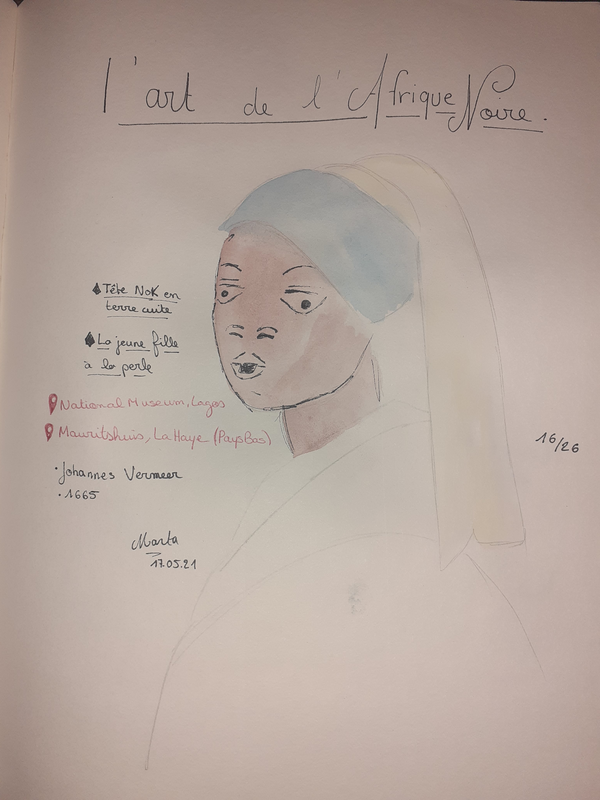 l'art de l'Afrique Noire.
Tête Nok en
terre cuite
La jeune fille
à la perle
National Museum, Lagos
Mauritshuis, La Haye (Pays Bas)
• Johannes Vermeer
• 1665
16/26
Marta
17.05.21